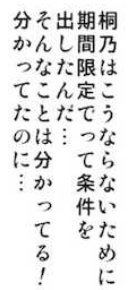 桐乃はこうならないために
期間限定でって条件を
出したんだ…
そんなことは分かってる!
分かってたのに…